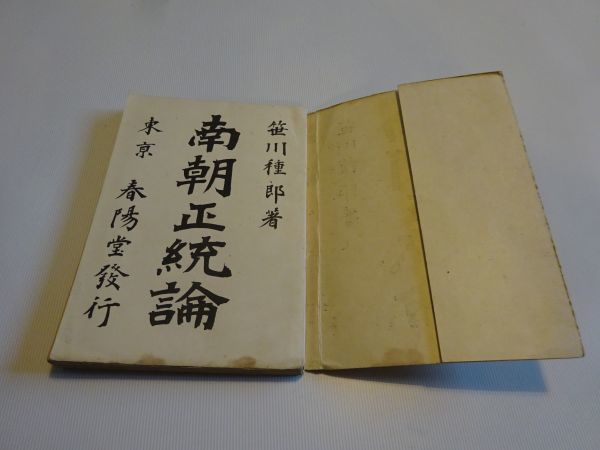 笹川種郎著
南朝正統論
東京 春陽堂發行